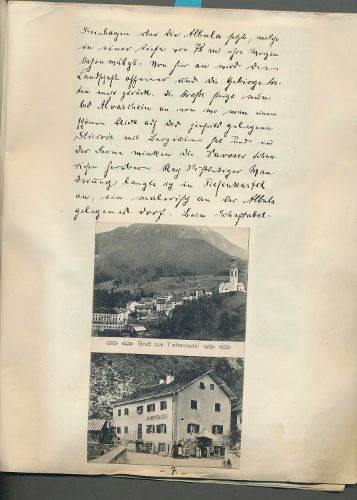 Steinbogen über die Albula setzt, welche
in einer Tiefe von 78 m ihre Wogen
dahin wälzt. Von hier an wird die
Landschaft offener und die Gebirge tre-
ten mehr zurück. Die Straße steigt nun
bis Alvaschein an von wo man einen
schönen Blick auf das jenseits gelegene
Stürvis mit Bergruine hat und in
der Ferne winken die Davoser
herüber. Nach stündiger Wan-
derung langte ich in Tiefenkastel
an, ein malerisch an der Albula
gelegenes Dorf. Beim Schaftobel-
Gruß aus Tiefencastel.
- 7 -